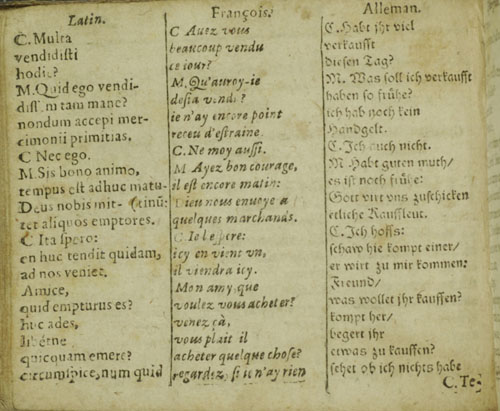 Latin.
C. Multa
vendidiſti
hodie?
M. Quid ego vendi-
diſſem tam mane?
nondum accepi mer-
cimonii primitias.
C Nec ego.
M. Sis bono animo,
tempus eſt adhuc matu-
Deus nobis mit- (tinũ:
tet aliquos emptores.
C. Ita ſpero:
en huc tendit quidam,
ad nos veniet.
Amice,
quid empturus es?
huc ades,
libetne
quicquam emere?
circumſpice, num quid
François.
C Auez vous
beaucoup vendu
ce iour?
M. Qu'auroy-ie
deſia vendu?
ie n'ay encore point
receu d'eſtraine.
C. Ne moy auſſi.
M Ayez bon courage,
il eſt encore matin:
Dieu nous enuoye a
quelques marchands.
C. Ie l'eſpere:
icy en vient vn,
il viendra icy.
Mon amy que
voulez vous acheter?
venez çà,
vous plait il
acheter quelque choſe?
regardez, ſi ie n'ay rien
Alleman.
C. Habt jhr viel
verkaufft
dieſen Tag?
M. Was ſoll ich verkaufft
haben ſo frühe?
ich hab noch kein
Handgelt.
C. Ich auch nicht.
M. Habt guten muth/
es iſt noch frühe:
Gott wirt vns zuſchicken
etliche Kauffleut.
C. Ich hoffs:
ſchaw hie kompt einer/
er wirt zu mir kommen:
Freund/
was wollet jhr kauffen?
kompt her/
begert jhr
etwas zu kauffen?
ſehet ob ich nichts habe
C. Te-